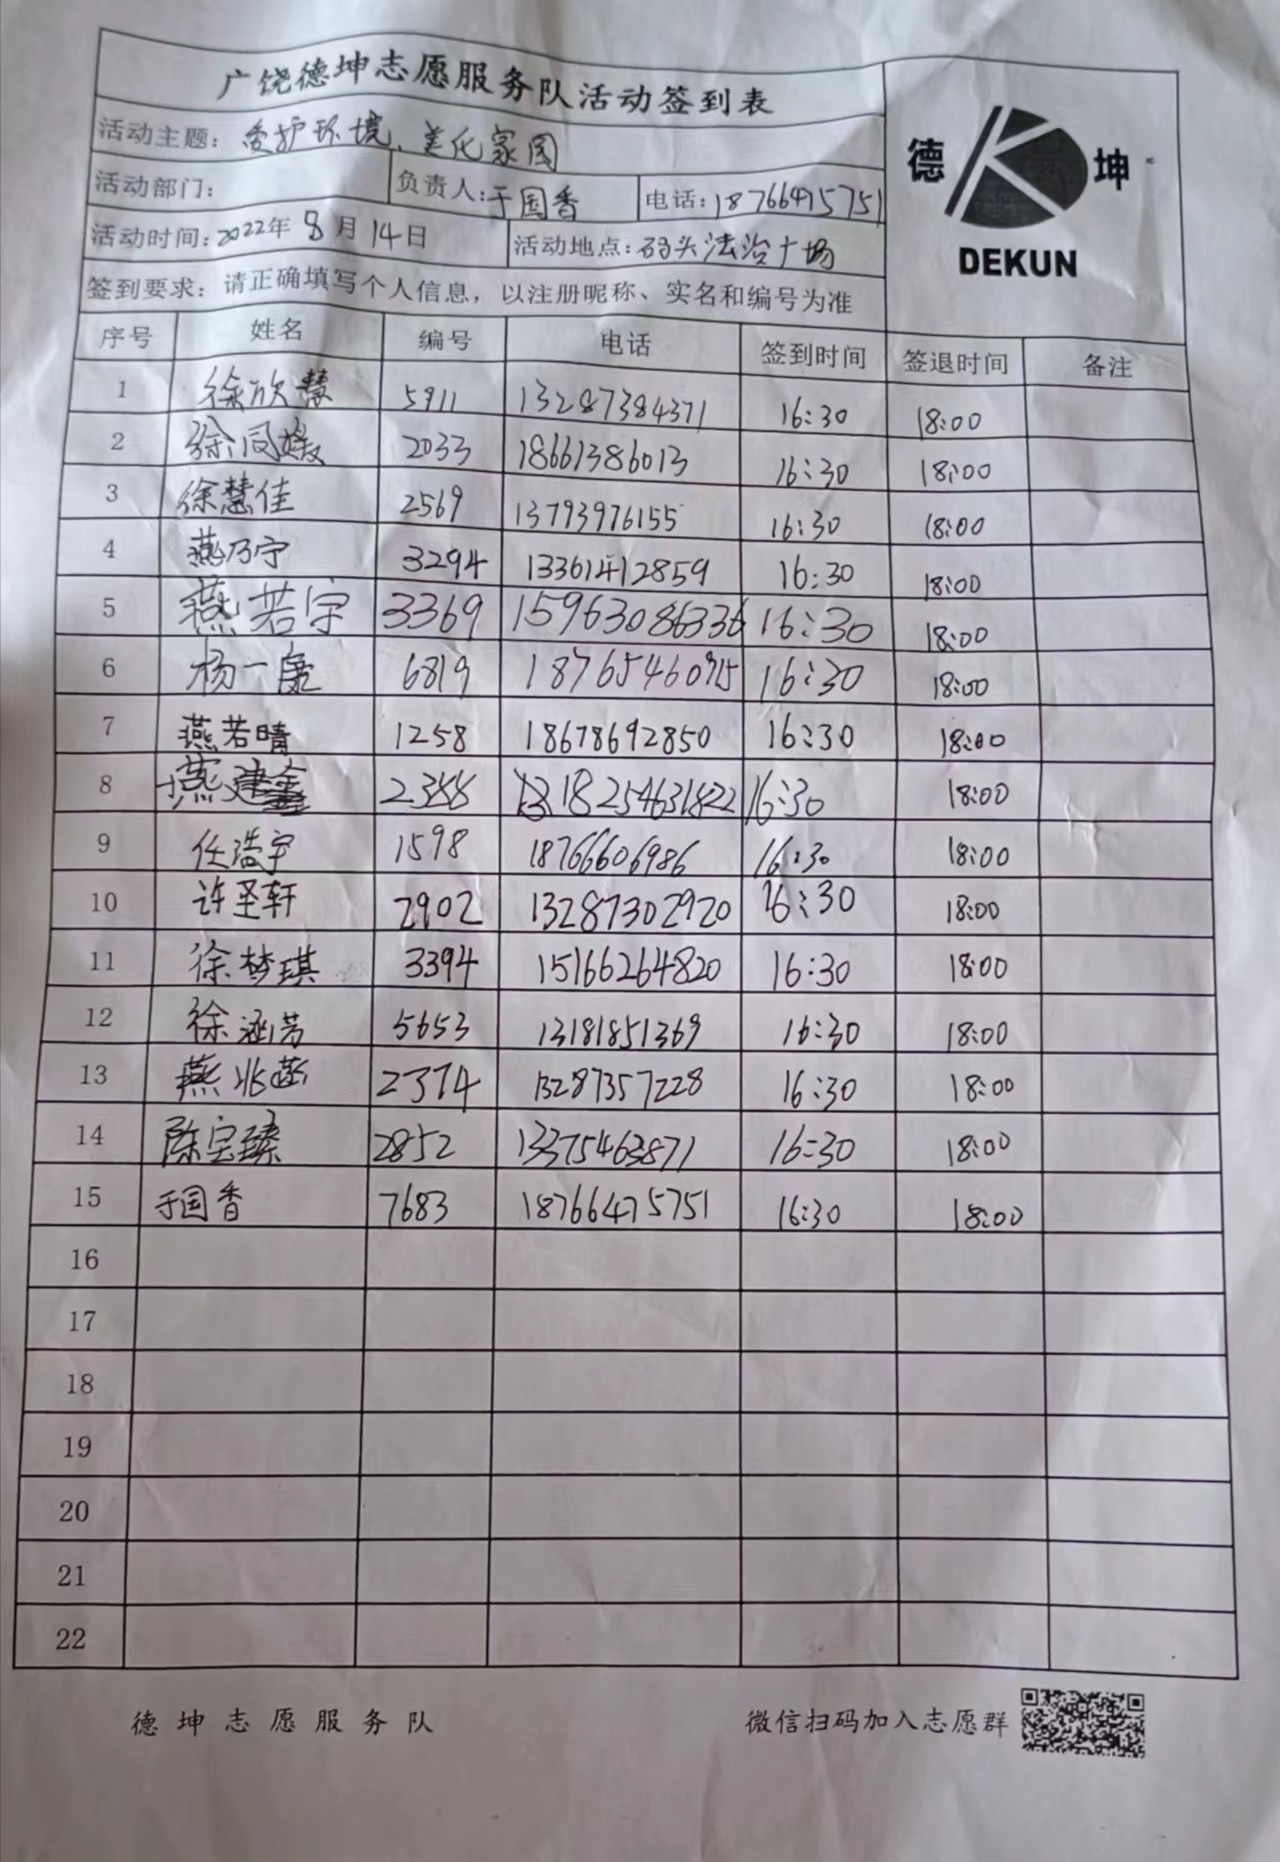 广饶德坤志愿服务队活动签到表
德 坤
DEKUN
活动主题: 爱护环境、美化家园
活动部门: 负责人: 于国香 电话: 18766475751
活动时间: 2022年 8月 14日 活动地点: 码头法治广场
签到要求: 请正确填写个人信息, 以注册昵称、实名和编号为准
序号 姓名 编号 电话 签到时间 签退时间 备注
1 徐欣慧 5911 13287384371 16:30 18:00
2 徐同媛 2033 18661386013 16:30 18:00
3 徐慧佳 2569 13793976155 16:30 18:00
4 燕乃宁 3294 13361412859 16:30 18:00
5 燕若宇 3369 15963086336 16:30 18:00
6 杨一康 6819 18765460915 16:30 18:00
7 燕若晴 1258 18678692850 16:30 18:00
8 燕建 18254631822 16:30 18:00
9 任浩宇 1598 18766606986 16:30 18:00
10 许圣轩 2902 13287302920 16:30 18:00
11 徐梦琪 3394 15166264820 16:30 18:00
12 徐涵芳 5653 13181851369 16:30 18:00
13 燕兆 2374 13287357228 16:30 18:00
14 陈宝臻 2852 13375463871 16:30 18:00
15 于国香 7683 18766475751 16:30 18:00
16
17
18
19
20
21
22
德坤志愿服务队 微信扫码加入志愿群